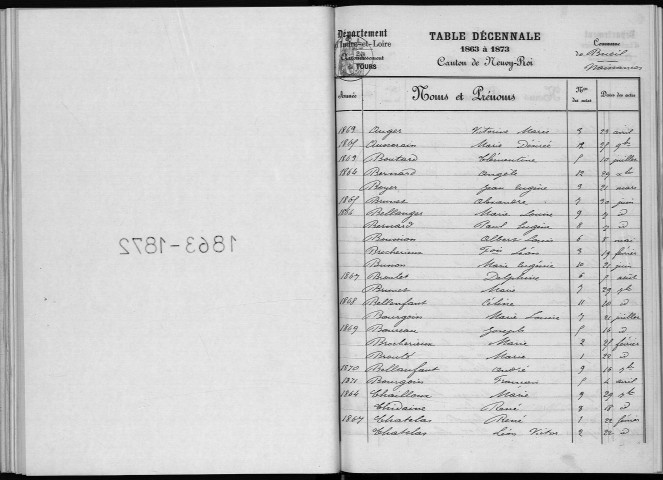 1863-1872
Département
d'Indre-et-Loire
Arrondissement
TOURS
TABLE DÉCENNALE
1863 à 1873
Canton de Neuvy-Roi
Commune
de Bueil
Naissances
Année
Noms et Prénoms
Nos des actes
Dates des actes
1863 Auger Marie 3 23 avril
1865 Marie Désirée 12
1863 Boutard Clémentine 5 10 juillet
1864 Bernard Angèle 12 29
Boyer Jean Eugène 3 21 mars
1865 Brunet Alexandre 7 30 juin
1866 Bellanger Marie Louise 9 7 d
Bernard Paul Eugène 8 7 d
Albert Louis 6 8 mai
Léon 3 19 février
Marie Eugénie 10 21 juin
1867 Delphine 6 août
Brunet Marie 7 29
1868 Bellenfant Céline 11 10 d
Bourgoin Marie Louise 7 21 juillet
1869 Joseph 5 16 d
Marie 2 25 février
Marie 1 22 d
1870 Bellanfant André 9 16
1871 Bourgoin 5 4 avril
1864 Chailloux Marie 9 29
René 8 18 d
1867 Chatelas René 1 22 février
Chatelas Léon Victor 2 22 d